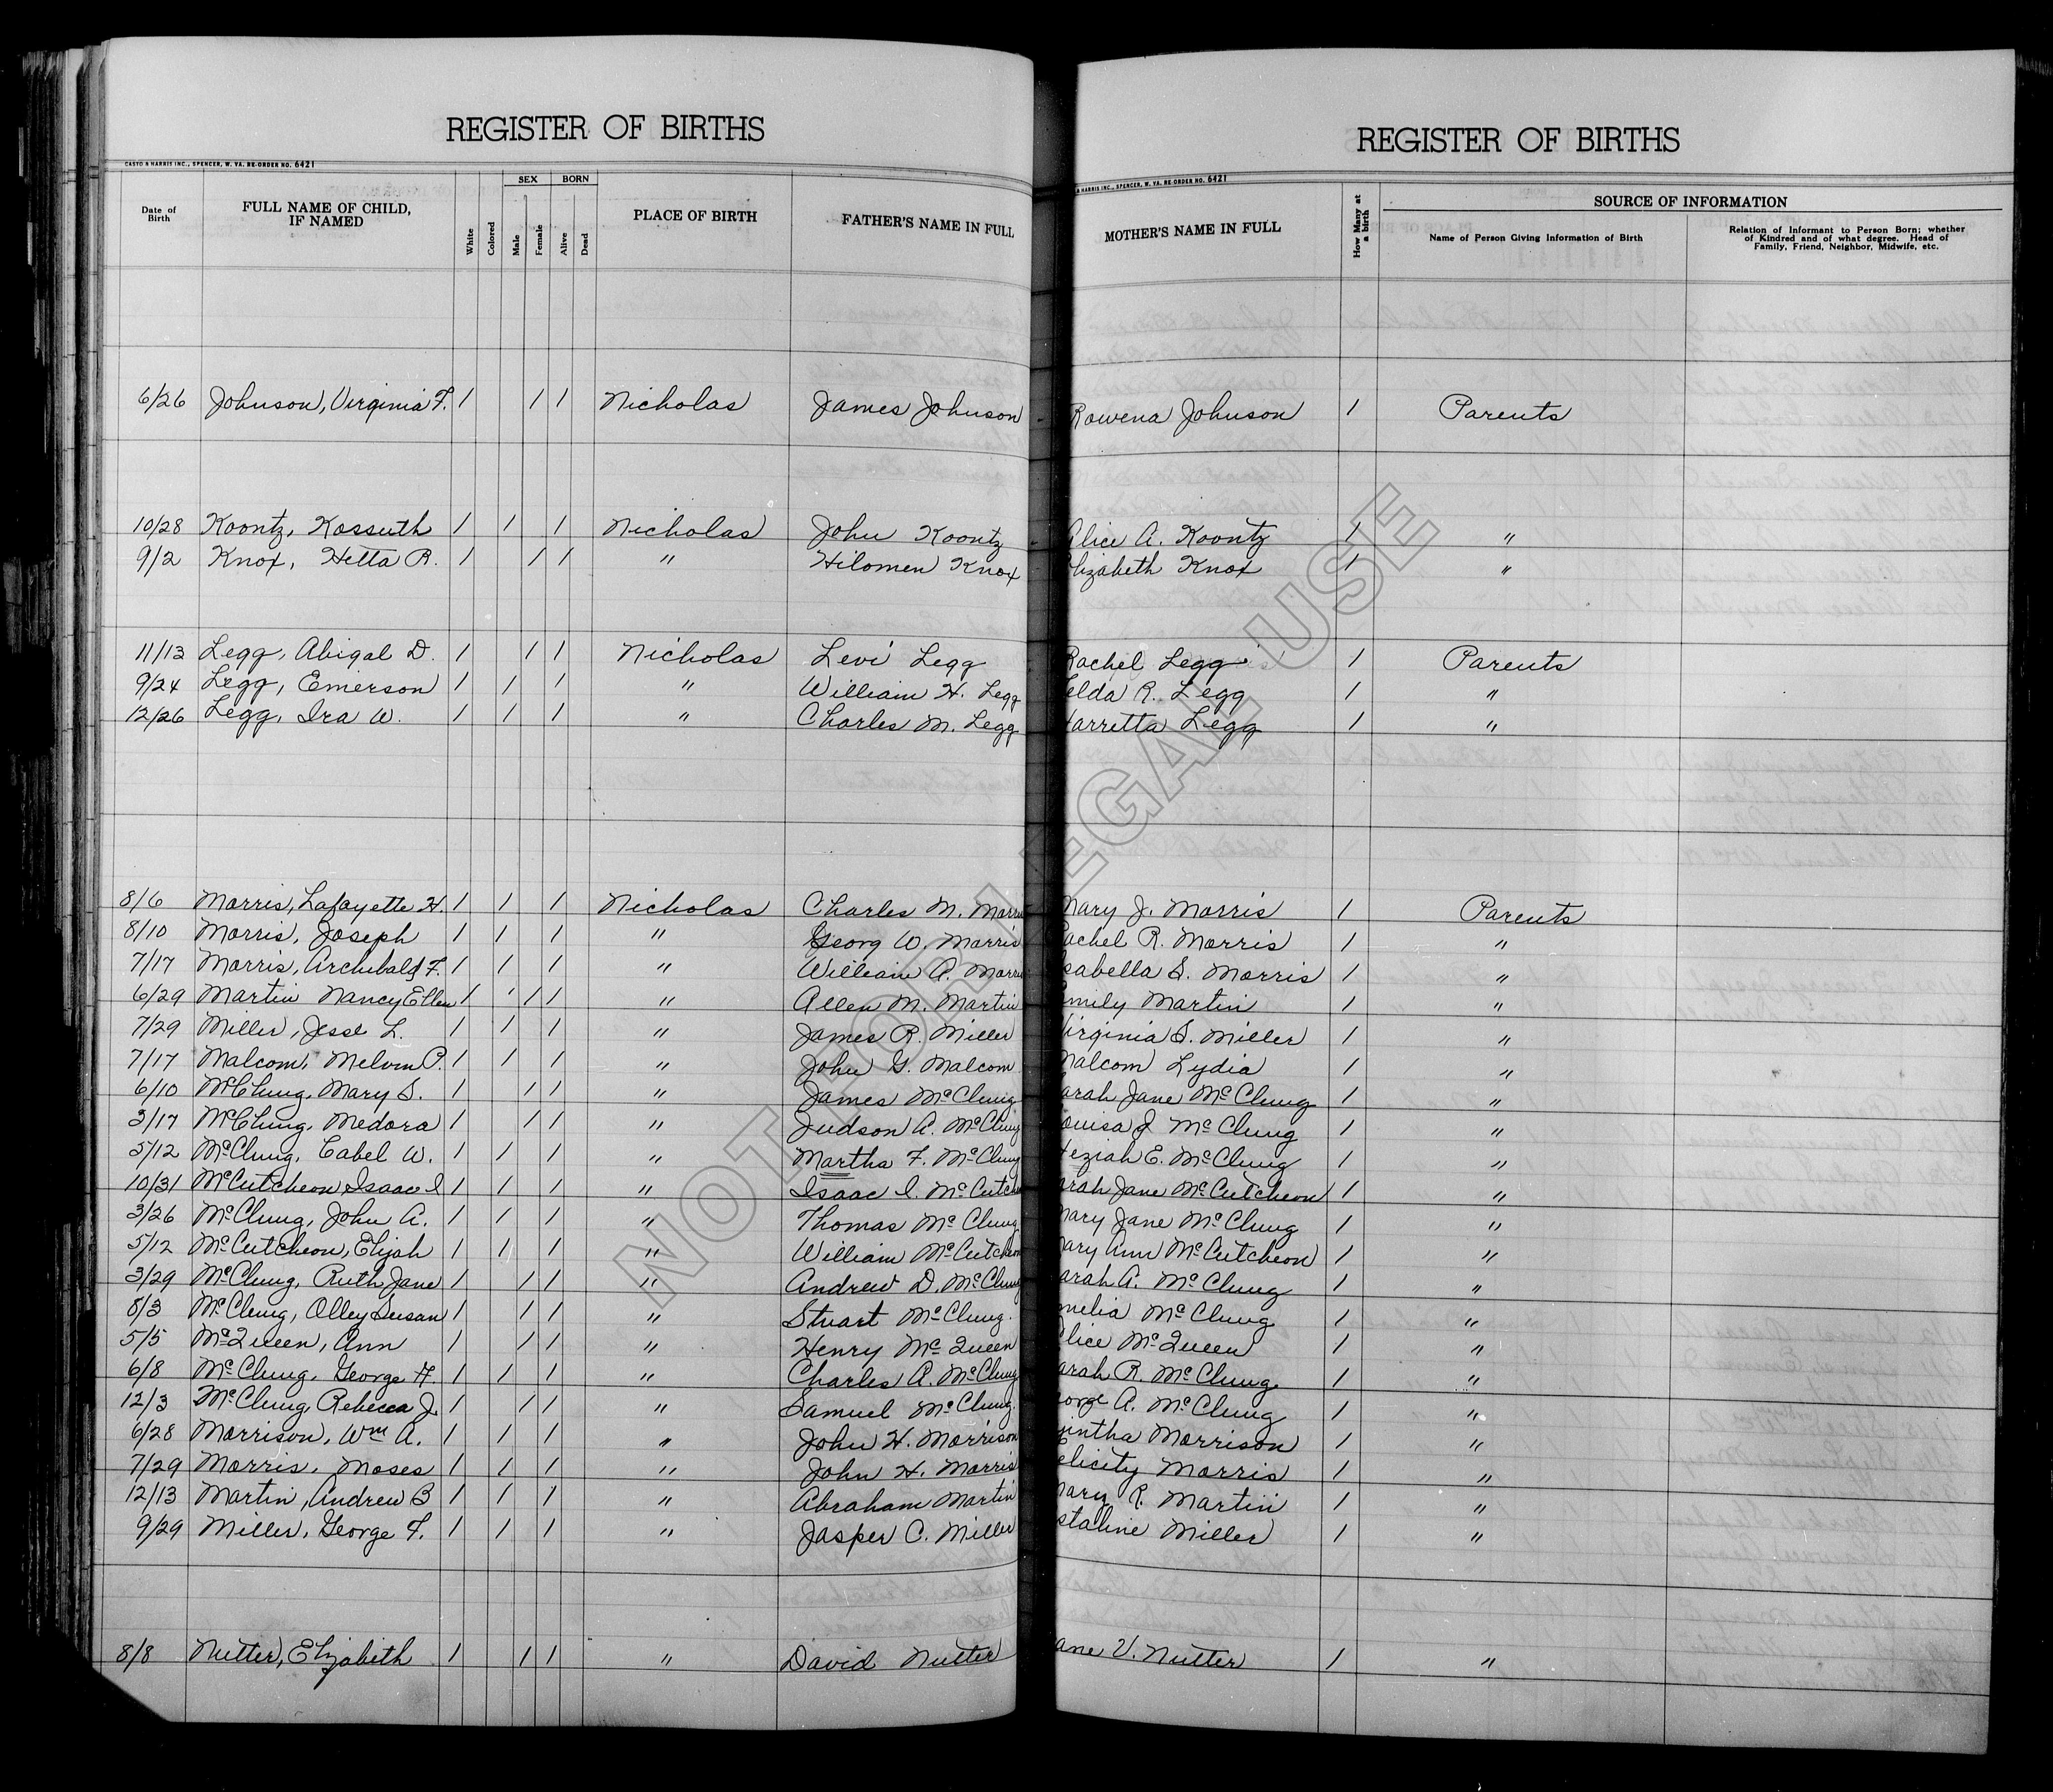 REGISTER OF BIRTHS
CASTO & HARRIS INC., SPENCER, W. VA. RE-ORDER NO. 6421
Date of Birth
FULL NAME OF CHILD, IF NAMED
White
Colored
SEX
Male
Female
BORN
Alive
Dead
PLACE OF BIRTH
FATHER'S NAME IN FULL
6/26 Johnson, Virginia F. 1 1 1 Nicholas James Johnson
10/28 Koontz, Kossuth 1 1 1 Nicholas John Koontz
9/2 Knox, Hetta R. 1 1 1 " Hilomen Knox
11/13 Legg, Abigal D. 1 1 1 Nicholas Levi Legg
9/24 Legg, Emerson 1 1 1 " William H. Legg
12/26 Legg, Ira W. 1 1 1 " Charles M. Legg
8/6 Morris, Lafayette H. 1 1 1 Nicholas Charles M. Morris
8/10 Morris, Joseph 1 1 1 " Georg W. Morris
7/17 Morris, Archibald F. 1 1 1 " William A. Morris
6/29 Martin Nancy Ellen 1 1 1 " Allen M. Martin
7/29 Miller, Jesse L. 1 1 1 " James R. Miller
7/17 Malcom, Melvin P. 1 1 1 " John G. Malcom
6/10 McClung, Mary S. 1 1 1 " James McClung
3/17 McClung, Medora 1 1 1 " Judson A. McClung
5/12 McClung, Cabel W. 1 1 1 " Martha F. McClung
10/31 McCutcheon Isaac I 1 1 1 " Isaac I. McCutche
3/26 McClung, John A. 1 1 1 " Thomas McClung
5/12 McCutcheon, Elijah 1 1 1 " William McCutcheon
3/29 McClung, Ruth Jane 1 1 1 " Andrew D. McClung
8/3 McClung, Olley Susan 1 1 1 " Stuart McClung.
5/5 McQueen, Ann 1 1 1 " Henry McQueen
6/8 McClung, George F. 1 1 1 " Charles A. McClung
12/3 McClung, Rebecca J. 1 1 1 " Samuel McClung.
6/28 Morrison, Wm A. 1 1 1 " John H. Morrison
7/29 Morris, Moses 1 1 1 " John H. Morris
12/13 Martin, Andrew B 1 1 1 " Abraham Martin
9/29 Miller, George F. 1 1 1 " Jasper C. Miller
8/8 Nutter, Elizabeth 1 1 1 " David Nutter
REGISTER OF BIRTHS
& HARRIS INC., SPENCER, W. VA. RE-ORDER NO. 6421
MOTHER'S NAME IN FULL
How Many at a birth
SOURCE OF INFORMATION
Name of Person Giving Information of Birth
Relation of Informant to Person Born; whether of Kindred and of what degree. Head of Family, Friend, Neighbor, Midwife, etc.
Rowena Johnson 1 Parents
Alice A. Koontz 1 "
lizabeth Knox 1 "
Rachel Legg 1 Parents
elda R. Legg 1 "
Harretta Legg 1 "
Mary J. Morris 1 Parents
achel R. Morris 1 "
sabella S. Morris 1 "
mily Martin 1 "
irginia S. Miller 1 "
Malcom Lydia 1 "
arah Jane McClung 1 "
ouisa J McClung 1 "
Heziah E. McClung 1 "
arah Jane McCutcheon 1 "
Mary Jane McClung 1 "
Mary Ann McCutcheon 1 "
arah A. McClung 1 "
melia McClung 1 "
Alice McQueen 1 "
arah R. McClung 1 "
A. McClung 1 "
yintha Morrison 1 "
elicity Morris 1 "
Mary R. Martin 1 "
staline Miller 1 "
ane V. Nutter 1 "
NOT FOR LEGAL USE